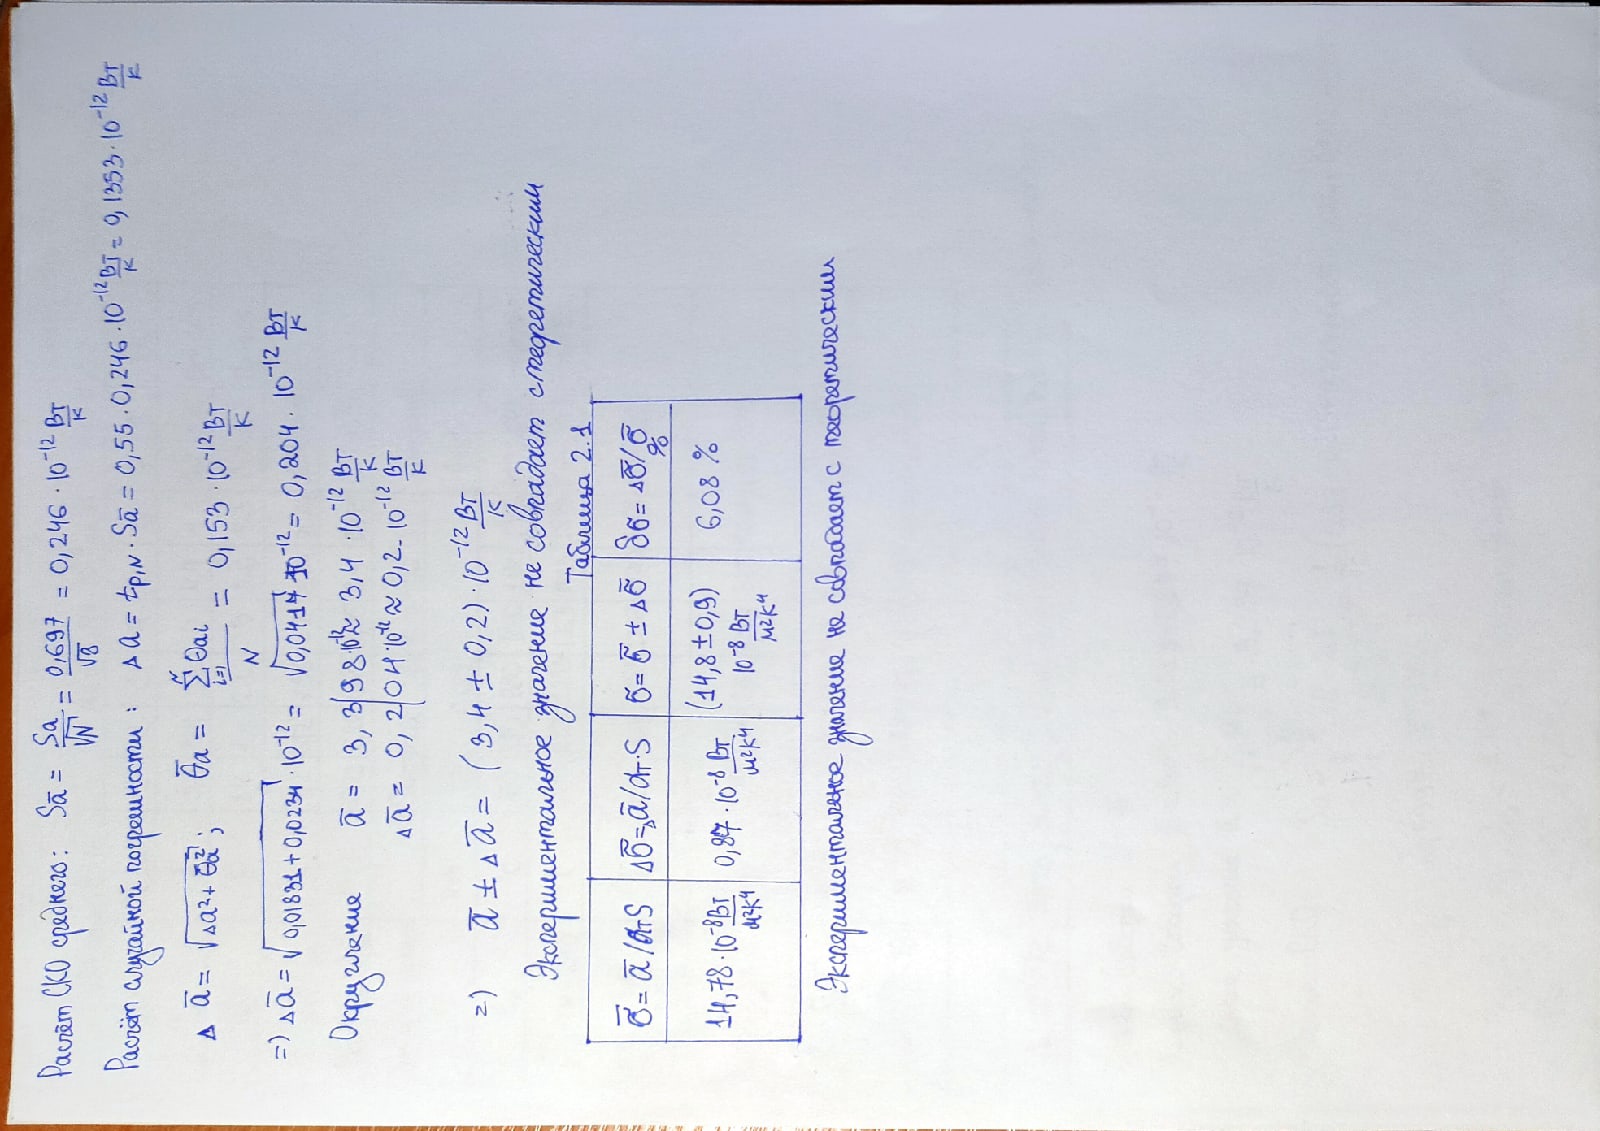 Расчёт СКО среднего: Sā = Sa/√N = 0,697/√8 = 0,246 · 10⁻¹² Вт/К
Расчёт случайной погрешности: Δa = tp,N · Sā = 0,55 · 0,246 · 10⁻¹² Вт/К = 0,1353 · 10⁻¹² Вт/К
Δā = √(Δa² + θ̄a²); θ̄a = Σᴺᵢ₌₁ θai / N = 0,153 · 10⁻¹² Вт/К
=) Δā = √(0,01831 + 0,0234) · 10⁻¹² = √0,0417 · 10⁻¹² = 0,204 · 10⁻¹² Вт/К
Округление ā = 3,3|98 · 10⁻¹² ≈ 3,4 · 10⁻¹² Вт/К
Δā = 0,2|04 · 10⁻¹² ≈ 0,2 · 10⁻¹² Вт/К
=) ā ± Δā = (3,4 ± 0,2) · 10⁻¹² Вт/К
Экспериментальное значение не совпадает с теоретическим
Таблица 2.1
σ̄ = ā/αтS Δσ̄ = Δā/αт·S σ = σ̄ ± Δσ̄ δσ = Δσ̄/σ̄ %
14,78 · 10⁻⁸ Вт/м²К⁴ 0,87 · 10⁻⁸ Вт/м²К⁴ (14,8 ± 0,9) 10⁻⁸ Вт/м²К⁴ 6,08 %
Экспериментальное значение не совпадает с теоретическим